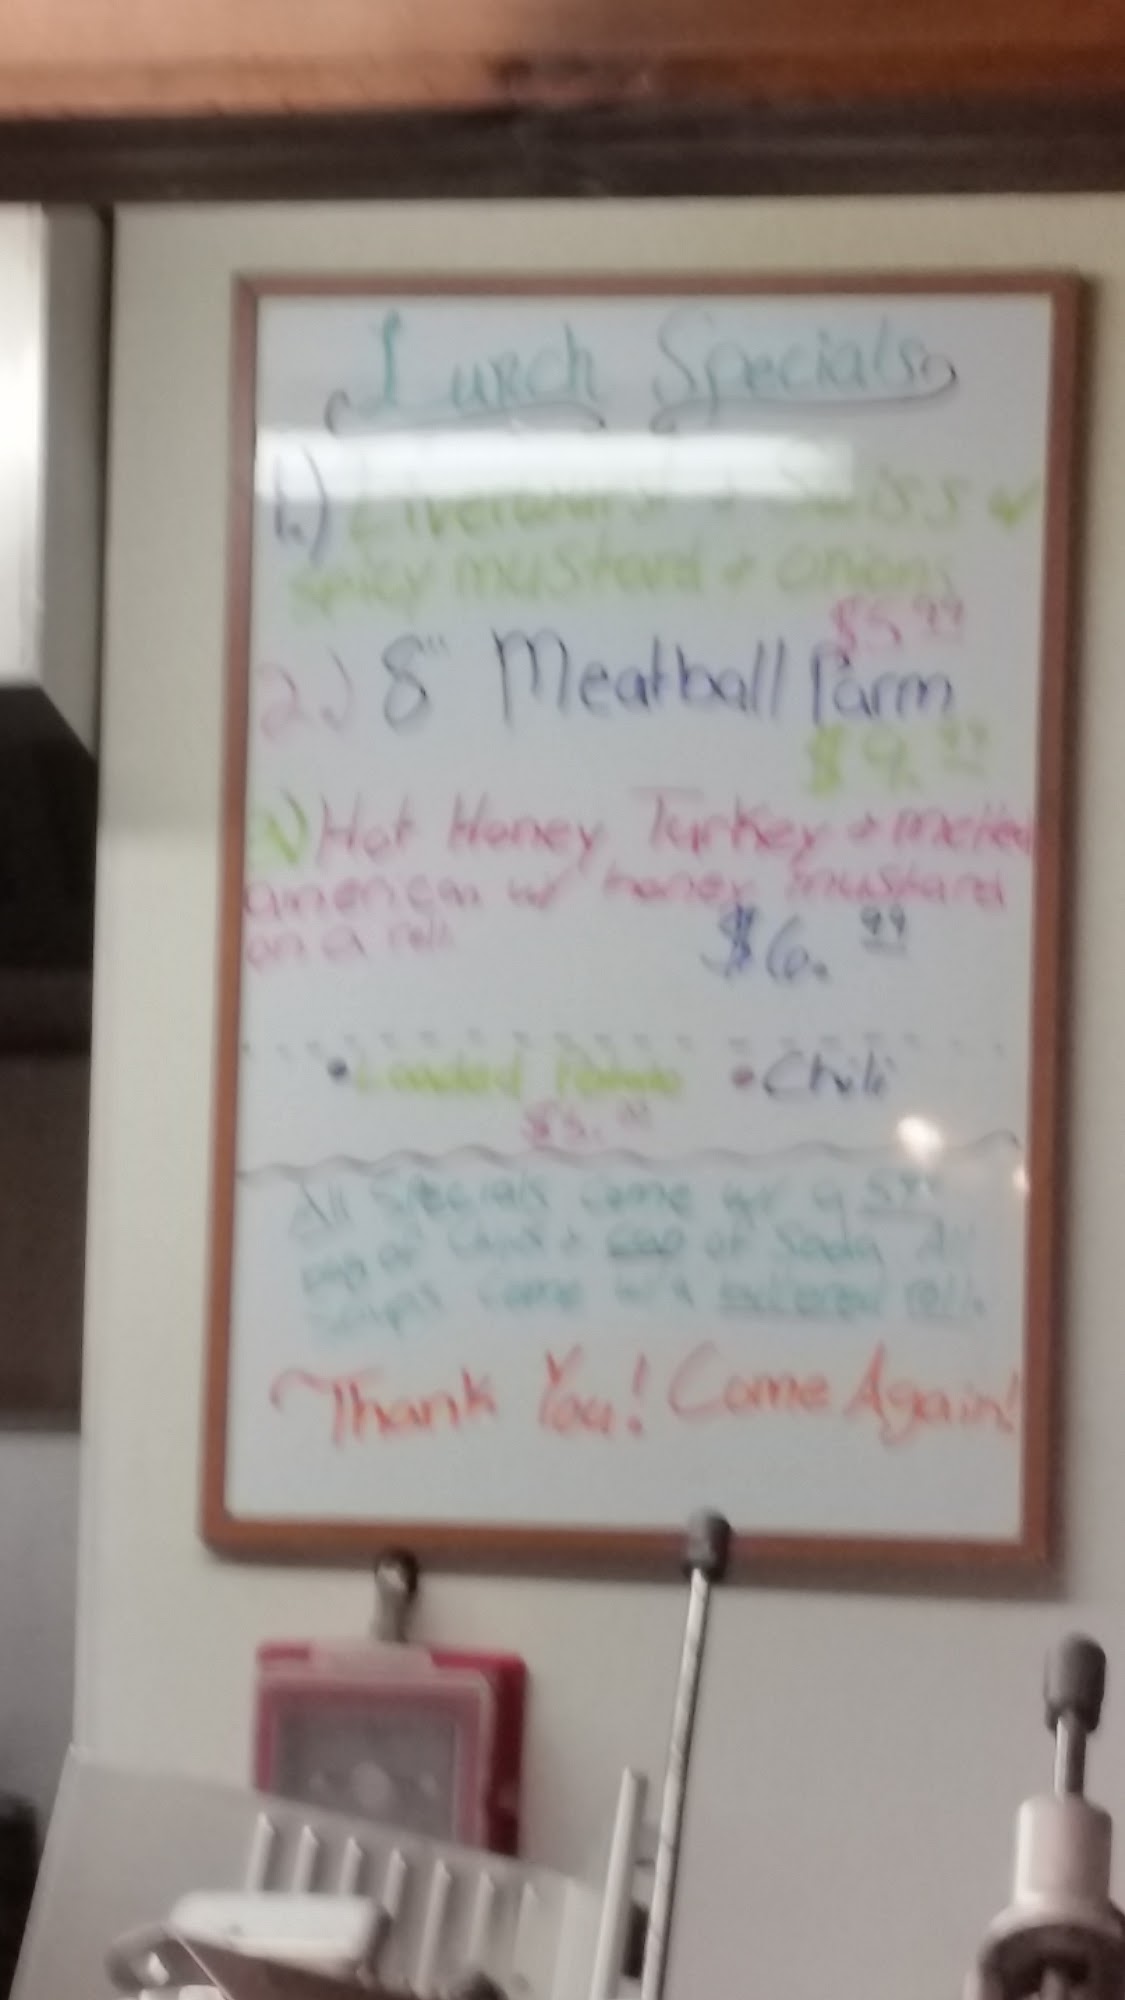 Lunch Specials
1.) Liverwurst + Swiss w/
spicy mustard + onions
$5.99
2.) 8" Meatball Parm
$9.99
3.) Hot Honey Turkey + melted
american w/ honey mustard
on a roll
$6.99
• Loaded Potato • Chili
$5.
All Specials come w/ a
bag of chips + can of soda. All
soups come w/ a buttered roll.
~Thank You! Come Again!